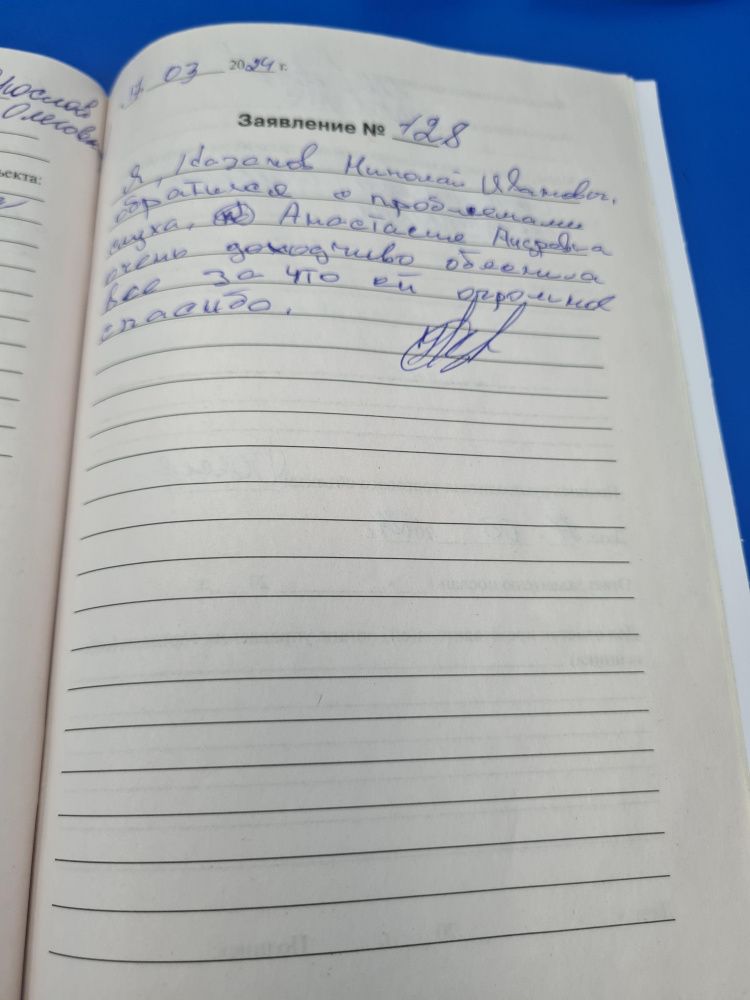 рослав
Олегови
ъекта:
17 03 2024 г.
Заявление № 128
Я, Казаков Николай Иванович,
обратился с проблемами
слуха. Анастасия Андревна
очень доходчиво обяснила
все за что ей огромное
спасибо.